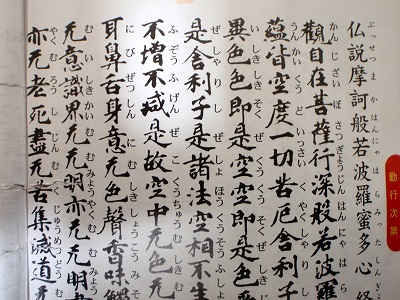 勤行次第
ぶっせつまかはんにゃはらみったしん
仏説摩訶般若波羅蜜多心経
かんじざいぼさつぎょうじんはんにゃはら
觀自在菩薩行深般若波羅
うんかいくうどいっさいくやくしゃりし
蘊皆空度一切苦厄舎利子
いしきしきそくぜくうくうそくぜしき
異色色即是空空即是色受
ぜしゃりしぜしょほうくうそうふしょう
是舎利子是諸法空相不生
ふぞうふげんぜこくうちゅうむしきむ
不増不减是故空中无色无
にびぜっしんにむしきしょうこうみそく
耳鼻舌身意无色聲香味觸
むいしきかいむむみょうやくむむみょう
无意識界无无明亦无无明
やくむろうしじんむくしゅうめつどうむ
亦无老死盡无苦集滅道无